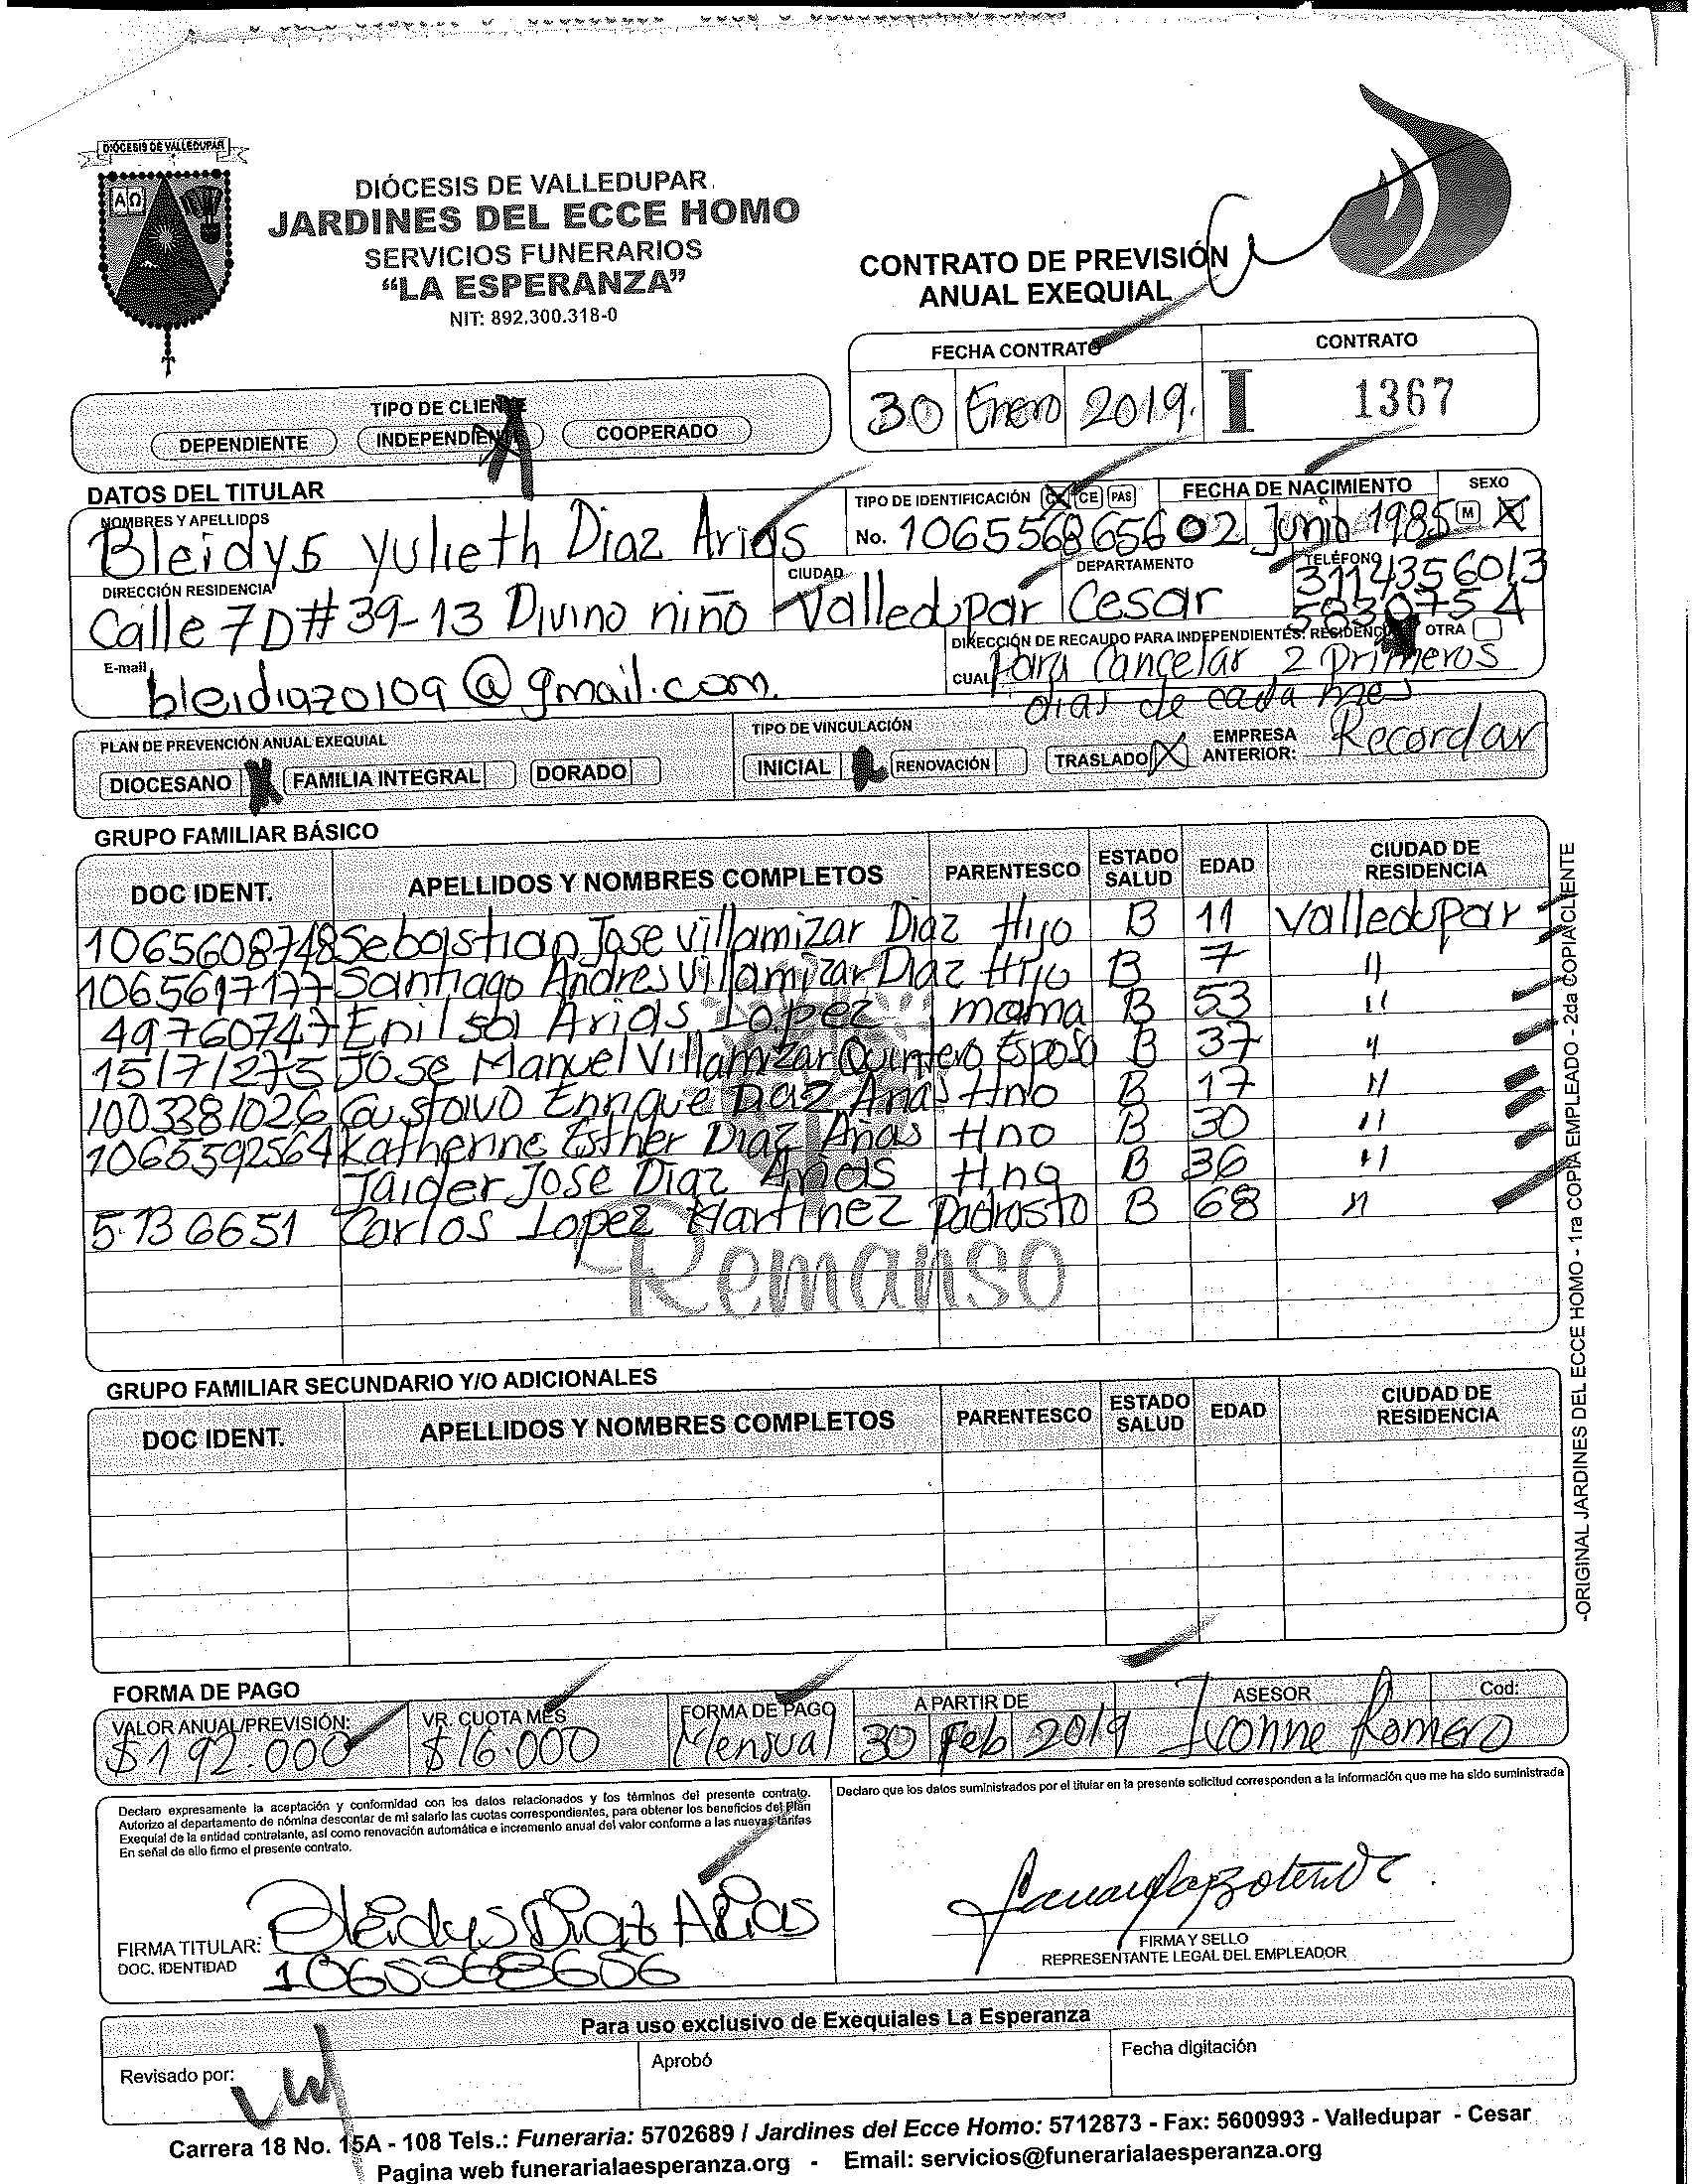 DIÓCESIS DE VALLEDUPAR
ΑΩ
DIÓCESIS DE VALLEDUPAR
JARDINES DEL ECCE HOMO
SERVICIOS FUNERARIOS
"LA ESPERANZA"
NIT: 892.300.318-0
CONTRATO DE PREVISIÓN
ANUAL EXEQUIAL
FECHA CONTRATO CONTRATO
30 Enero 2019. I 1367
TIPO DE CLIENTE
DEPENDIENTE INDEPENDIENTE COOPERADO
DATOS DEL TITULAR
NOMBRES Y APELLIDOS TIPO DE IDENTIFICACIÓN CC CE PAS FECHA DE NACIMIENTO SEXO
Bleidys Yulieth Diaz Arias No. 1065568656 02 Junio 1985 M X
DIRECCIÓN RESIDENCIA CIUDAD DEPARTAMENTO TELÉFONO
Calle 7D#39-13 Divino niño Valledupar Cesar 3114356013
5830754
DIRECCIÓN DE RECAUDO PARA INDEPENDIENTES: RESIDENCIA OTRA
E-mail bleidiaz0109@gmail.com. CUAL Para Cancelar 2 Primeros
dias de cada mes
PLAN DE PREVENCIÓN ANUAL EXEQUIAL TIPO DE VINCULACIÓN
DIOCESANO X FAMILIA INTEGRAL DORADO INICIAL RENOVACIÓN TRASLADO X EMPRESA ANTERIOR: Recordar
GRUPO FAMILIAR BÁSICO
DOC IDENT. APELLIDOS Y NOMBRES COMPLETOS PARENTESCO ESTADO SALUD EDAD CIUDAD DE RESIDENCIA
1065608748 Sebastian Jose Villamizar Diaz Hijo B 11 Valledupar
1065617177 Santiago Andres Villamizar Diaz Hijo B 7 "
49760747 Enilsa Arias Lopez mama B 53 "
15171275 Jose Manuel Villamizar Quintero Esposo B 37 "
1003381026 Gustavo Enrique Diaz Arias Hno B 17 "
1065592564 Katherine Esther Diaz Arias Hno B 30 "
Jaider Jose Diaz Arias Hno B 36 "
5136651 Carlos Lopez Martinez Padrasto B 68 "
Remanso
GRUPO FAMILIAR SECUNDARIO Y/O ADICIONALES
DOC IDENT. APELLIDOS Y NOMBRES COMPLETOS PARENTESCO ESTADO SALUD EDAD CIUDAD DE RESIDENCIA
-ORIGINAL JARDINES DEL ECCE HOMO - 1ra COPIA EMPLEADO - 2da COPIA CLIENTE
FORMA DE PAGO
VALOR ANUAL/PREVISIÓN: VR. CUOTA MES FORMA DE PAGO A PARTIR DE ASESOR Cod:
$192.000 $16.000 Mensual 30 Feb 2019 Ivonne Romero
Declaro expresamente la aceptación y conformidad con los datos relacionados y los términos del presente contrato.
Autorizo al departamento de nómina descontar de mi salario las cuotas correspondientes, para obtener los beneficios del Plan
Exequial de la entidad contratante, así como renovación automática e incremento anual del valor conforme a las nuevas tarifas
En señal de ello firmo el presente contrato.
Declaro que los datos suministrados por el titular en la presente solicitud corresponden a la información que me ha sido suministrada
FIRMA TITULAR: Bleidys Diaz Arias
DOC. IDENTIDAD 1065568656
FIRMA Y SELLO
REPRESENTANTE LEGAL DEL EMPLEADOR
Para uso exclusivo de Exequiales La Esperanza
Revisado por: Aprobó Fecha digitación
Carrera 18 No. 15A - 108 Tels.: Funeraria: 5702689 / Jardines del Ecce Homo: 5712873 - Fax: 5600993 - Valledupar - Cesar
Pagina web funerarialaesperanza.org - Email: servicios@funerarialaesperanza.org